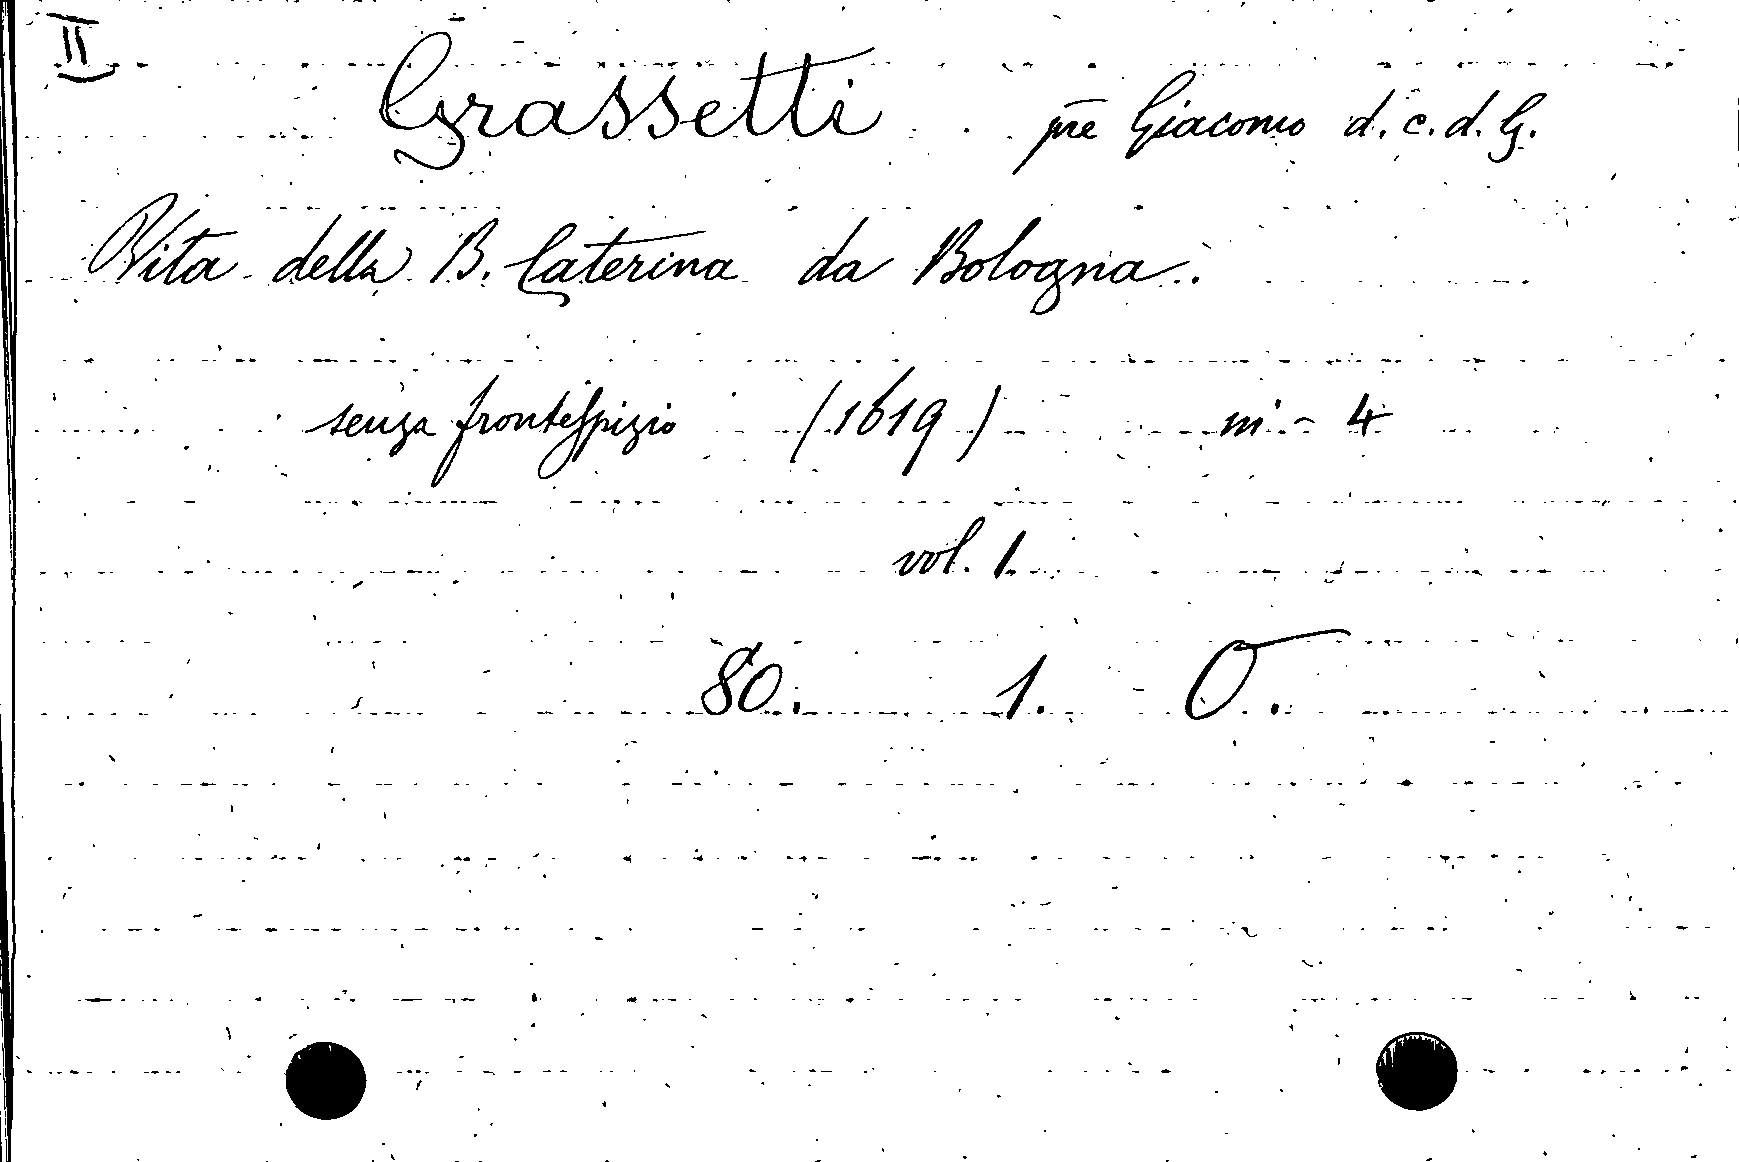 II
Grassetti pre Giacomo d. c. d. G.
Vita della B. Caterina da Bologna.
senza frontespizio (1619) in - 4
vol. 1.
80. 1. O.